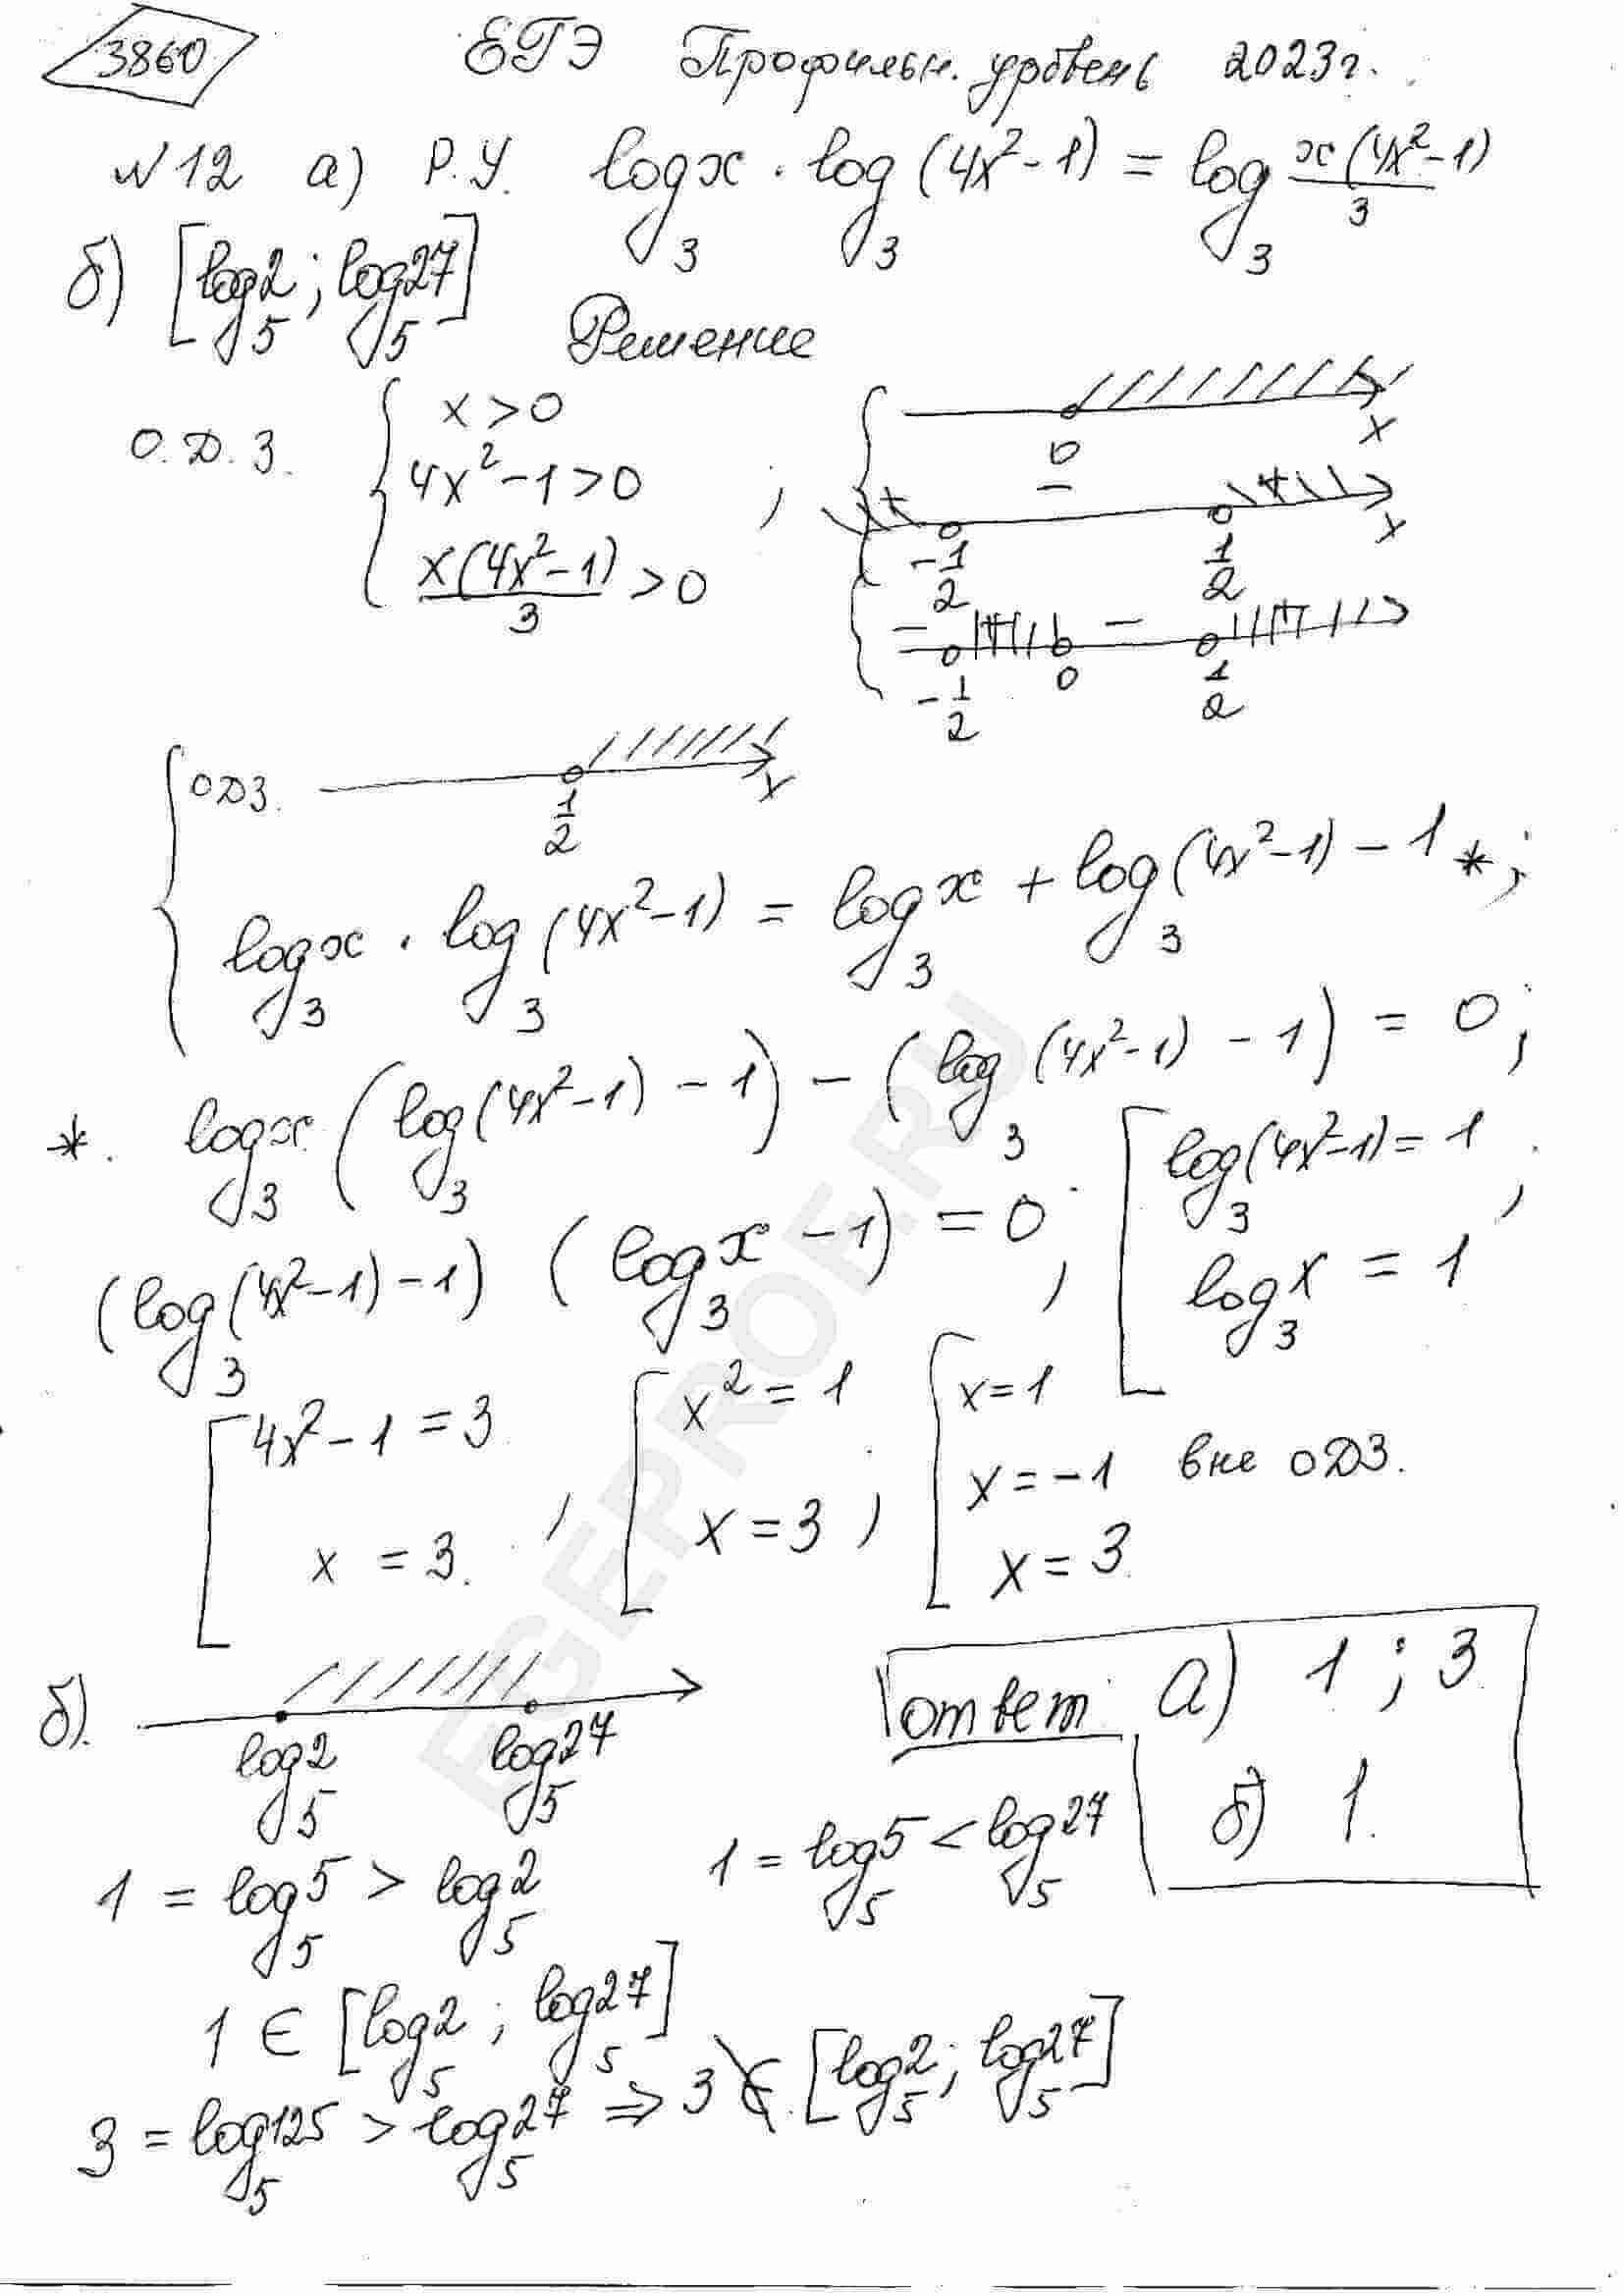 3860 ЕГЭ Профильн. уровень 2023г.
№12 а) Р.У. log₃x · log₃(4x²-1) = log₃ x(4x²-1)/3
б) [log₅2 ; log₅27]
Решение
О.Д.З. { x>0 ; 4x²-1>0 ; x(4x²-1)/3 >0 ;
0 x
- -1/2 1/2 x
- -1/2 0 - 1/2
{ ОДЗ. 1/2 x
log₃x · log₃(4x²-1) = log₃x + log₃(4x²-1) - 1 * ;
*. log₃x (log₃(4x²-1) - 1) - (log₃(4x²-1) - 1) = 0 ;
(log₃(4x²-1) - 1) (log₃x - 1) = 0 ; [ log₃(4x²-1) = 1 ; log₃x = 1
[ 4x²-1 = 3 ; x = 3. ; [ x² = 1 ; x = 3 ; [ x=1
x = -1 вне ОДЗ.
x = 3.
б). log₅2 log₅27
ответ: а) 1 ; 3.
б) 1.
1 = log₅5 > log₅2 1 = log₅5 < log₅27
1 ∈ [log₅2 ; log₅27]
3 = log₅125 > log₅27 ⇒ 3 ∉ [log₅2 ; log₅27]
EGEPROF.RU